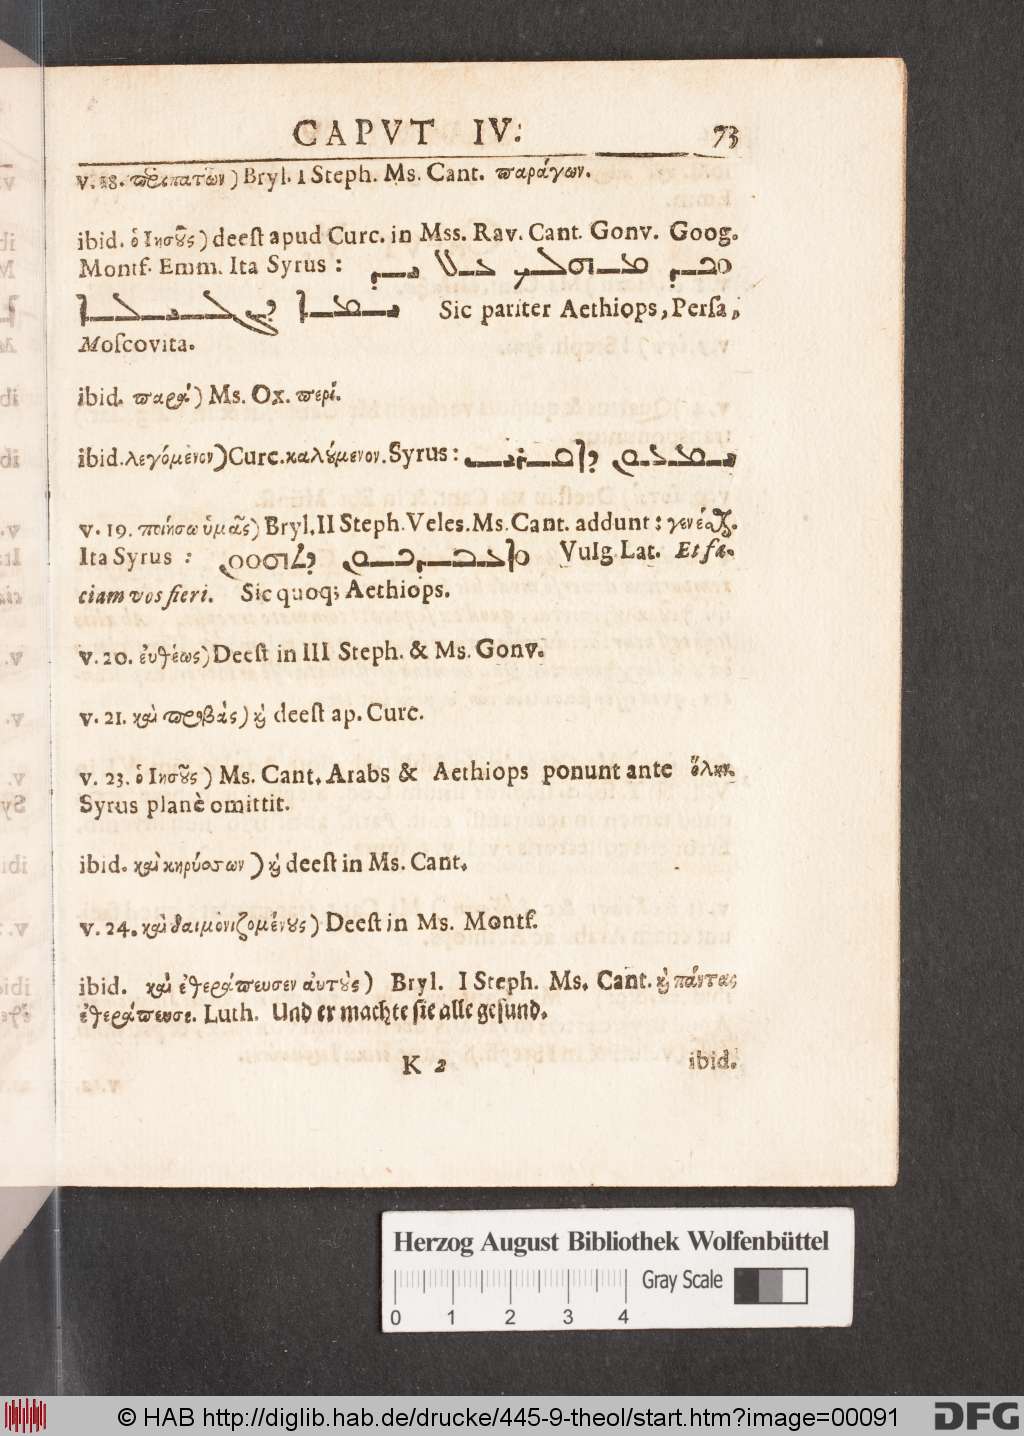 CAPVT IV: 73
v. 18. περιπατῶν) Bryl. I Steph. Ms. Cant. παράγων.
ibid. ὁ Ιησοῦς) deeſt apud Curc. in Mss. Rav. Cant. Gonv. Goog.
Montf. Emm. Ita Syrus :
Sic pariter Aethiops, Perſa,
Moſcovita.
ibid. παρὰ) Ms. Ox. περί.
ibid. λεγόμενον) Curc. καλούμενον. Syrus :
v. 19. ποιήσω ὑμᾶς) Bryl. II Steph. Veles. Ms. Cant. addunt : γενέσθαι.
Ita Syrus : Vulg. Lat. Et fa-
ciam vos fieri. Sic quoq; Aethiops.
v. 20. ἐυθέως) Deeſt in III Steph. & Ms. Gonv.
v. 21. καὶ προβὰς) καὶ deeſt ap. Curc.
v. 23. ὁ Ιησοῦς) Ms. Cant. Arabs & Aethiops ponunt ante ὅλην.
Syrus planè omittit.
ibid. καὶ κηρύσσων) καὶ deeſt in Ms. Cant.
v. 24. καὶ δαιμονιζομένους) Deeſt in Ms. Montf.
ibid. καὶ ἐθεράπευσεν ἀυτοὺς) Bryl. I Steph. Ms. Cant. καὶ πάντας
ἐθεράπευσε. Luth. Und er machte ſie alle geſund.
K 2 ibid.
Herzog August Bibliothek Wolfenbüttel
Gray Scale
0 1 2 3 4
© HAB http://diglib.hab.de/drucke/445-9-theol/start.htm?image=00091 DFG